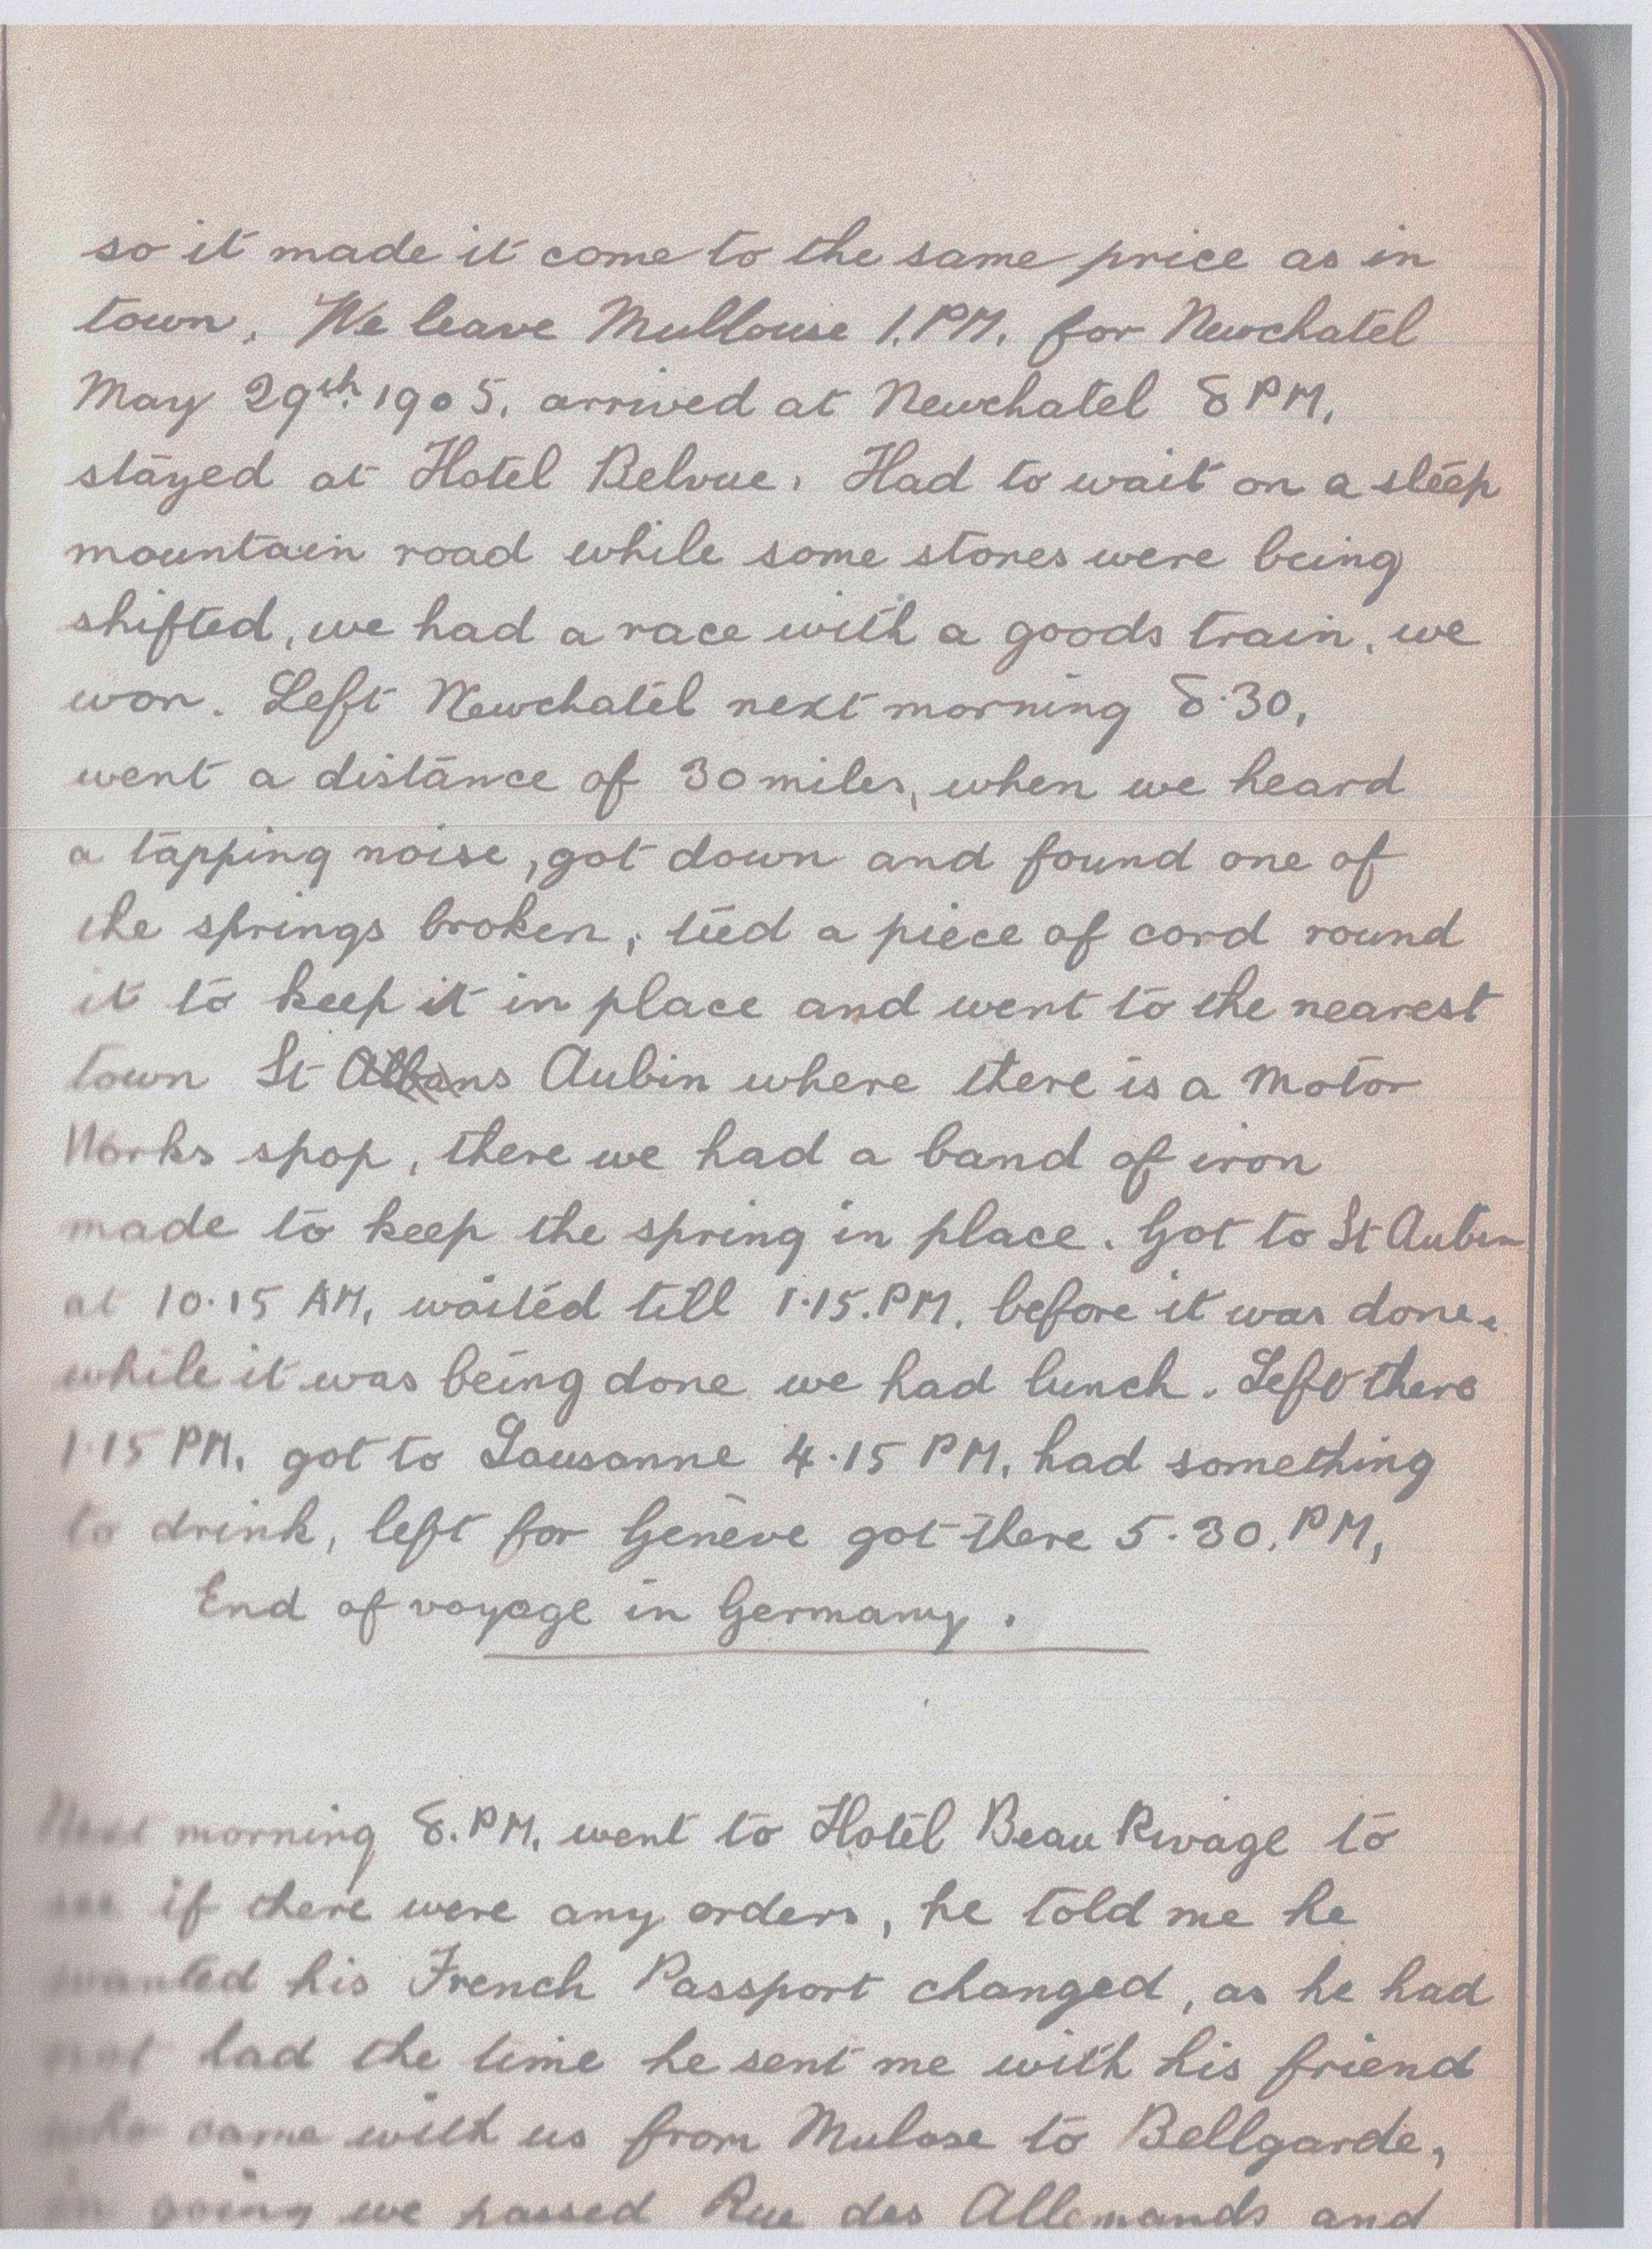 so it made it come to the same price as in
town. We leave Mullouse 1.PM. for Newchatel
May 29th. 1905. arrived at Newchatel 8 PM.
stayed at Hotel Belvue. Had to wait on a steep
mountain road while some stones were being
shifted, we had a race with a goods train, we
won. Left Newchatel next morning 8.30,
went a distance of 30 miles, when we heard
a tapping noise, got down and found one of
the springs broken, tied a piece of cord round
it to keep it in place and went to the nearest
town St Albans Aubin where there is a Motor
Works spop, there we had a band of iron
made to keep the spring in place. Got to St Aubin
at 10.15 AM, waited till 1.15.PM. before it was done.
while it was being done we had lunch. Left there
1.15 PM. got to Lausanne 4.15 PM. had something
to drink, left for Genève got there 5.30.PM,
End of voyage in Germany.
Next morning 8.PM. went to Hotel Beau Rivage to
see if there were any orders, he told me he
wanted his French Passport changed, as he had
not had the time he sent me with his friend
who came with us from Mulose to Bellgarde,
in going we passed Rue des Allemands and